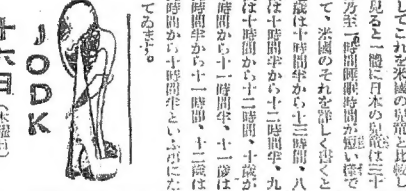 してこれを米國の兒童と比較し
見ると一體に日本の兒童は三十
乃至一時間睡眠時間が短い樣で
て、米國のそれを詳しく書くと
歲は十時間半から十三時間、八
は十時間半から十二時間半、九
は十時間から十二時間、十歲が
時間から十一時間半、十一歲は
時間半から十一時間、十二歲は
時間から十時間半といふ風にな
てゐます。
JODK
廿六日(木曜日)